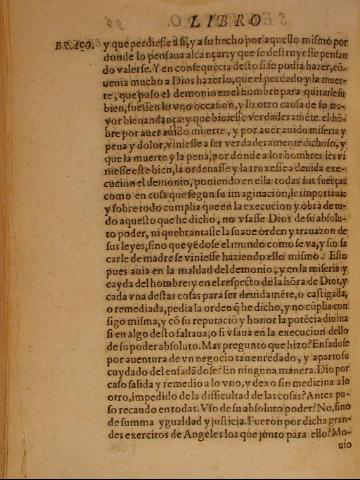 LIBRO
BRAÇO. y que perdiesse a si, y a su hecho por aquello mismo por
donde lo pensaua alcançar: y que se destruyesse pensan
do valerse. Y en consequēcia desto si se podia hazer, cō-
uenia mucho a Dios hazerlo, que el pecado y la muer-
te, que puso el demonio en el hombre para quitarle su
bien, fuessen lo vno occasiōn, y lo otro causa de su ma-
yor bienandança: y que biuiesse verdaderamēte el hō-
bre por auer auido muerte, y por auer auido miseria y
pena y dolor, viniesse a ser verdaderamente dichoso, y
que la muerte y la pena, por donde a los hombres les vi
niesse este bien, la ordenasse y la truxesse a deuida exe-
cucion el demonio, poniendo en ella todas sus fuerças
como en cosa que segun su imaginacion, le importaua:
y sobre todo cumplia que en la execucion y obra de to-
do aquesto que he dicho, no vsasse Dios de su absolu-
to poder, ni quebrantasse la suaue orden y trauazon de
sus leyes, sino que yēdose el mundo como se va, y sin sa
carle de madre se viniesse haziendo ello mismo. Esto
pues auia en la maldad del demonio, y en la miseria y
cayda del hombre: y en el respecto de la hōra de Dios, y
cada vna destas cosas para ser deuidamēte, o castigada,
o remediada, pedia la ordē q̃ he dicho, y no cūplia con
sigo misma, y cō su reputaciō y honor la potēcia diuina
si en algo desto faltaua, o si vsaua en la execucion dello
de su poder absoluto. Mas pregunto que hizo? Enfadose
por auentura de vn negocio tan enredado, y aparto su
cuydado del enfadādose? En ninguna manera. Dio por
caso salida y remedio a lo vno, y dexo sin medicina a lo
otro, impedido de la difficultad de las cosas? Antes pu-
so recaudo en todas. Vso de su absoluto poder? No, sino
de summa ygualdad y justicia. Fueron por dicha gran-
des exercitos de Angeles los que junto para ello? Mo-
uio